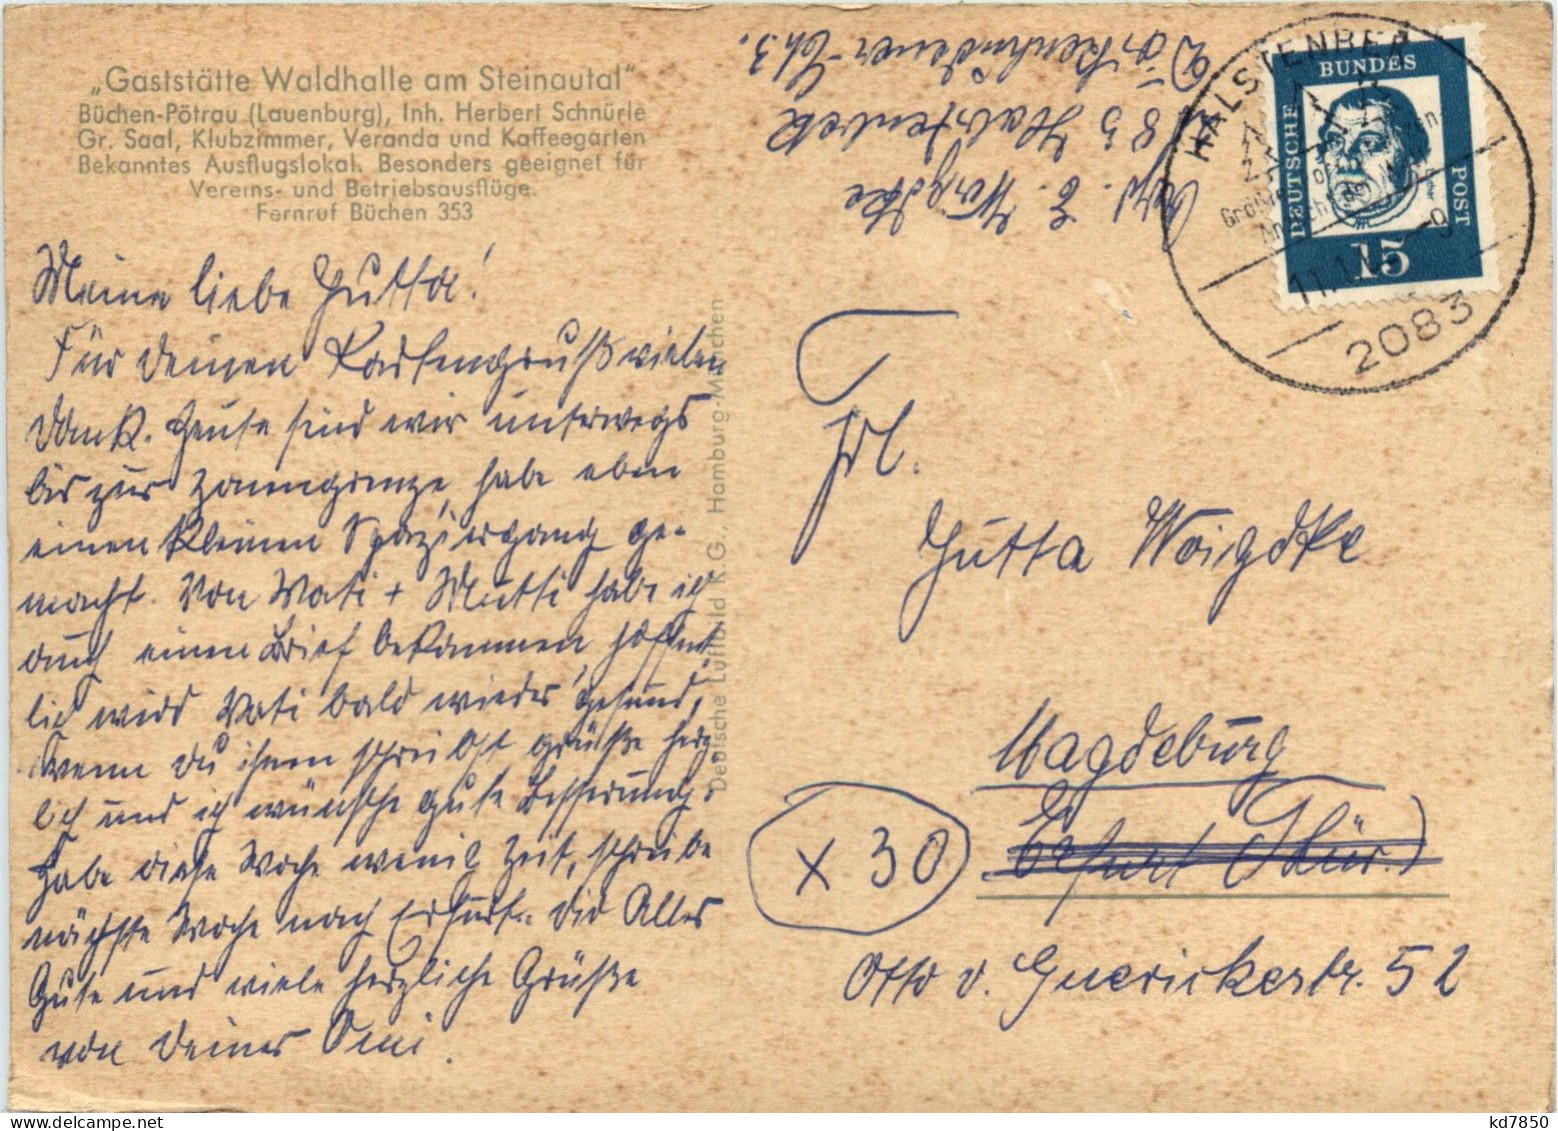 „Gaststätte Waldhalle am Steinautal“
Büchen-Pötrau (Lauenburg), Inh. Herbert Schnürle
Gr. Saal, Klubzimmer, Veranda und Kaffeegarten
Bekanntes Ausflugslokal. Besonders geeignet für
Vereins- und Betriebsausflüge.
Fernruf Büchen 353
Meine liebe Jutta!
Für Deinen Kartengruß vielen
Dank. Heute sind wir unterwegs
bis zur Zonengrenze, habe eben
einen kleinen Spaziergang ge-
macht. Von Vati + Mutti habe ich
auch einen Brief bekommen, hoffent-
lich wird Vati bald wieder gesund,
wenn Du ihnen schreibst grüße herz-
lich und ich wünsche gute Besserung.
Habe diese Woche wenig Zeit, schreibe
nächste Woche nach Erfurt. Dir Alles
Gute und viele herzliche Grüße
von Deiner Omi.
Deutsche Luftbild K.G., Hamburg-München
Abs. E. Woigdtke
2083 Halstenbek
HALSTENBEK
2083
DEUTSCHE
BUNDES
POST
15
Frl.
Jutta Woigdtke
Magdeburg
Erfurt (Thür.)
x 30
Otto v. Guerickestr. 52
kd7850